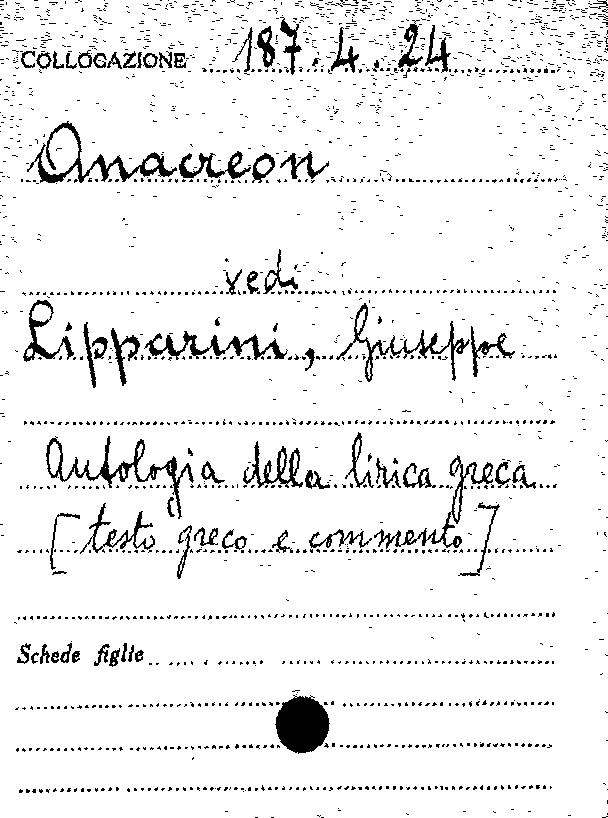 COLLOCAZIONE 187.4.24
Anacreon
vedi
Lipparini, Giuseppe
Antologia della lirica greca
[testo greco e commento]
Schede figlie